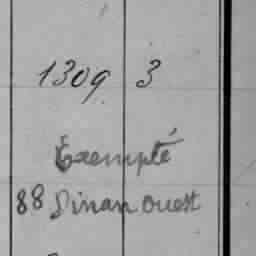 1309 3
Exempté
88 Dinan Ouest